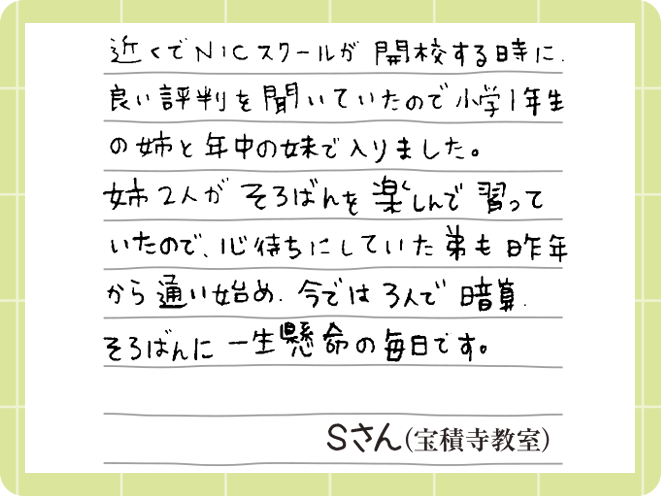 近くでNICスクールが開校する時に、
良い評判を聞いていたので小学1年生
の姉と年中の妹で入りました。
姉2人がそろばんを楽しんで習って
いたので、心待ちにしていた弟も昨年
から通い始め、今では3人で暗算、
そろばんに一生懸命の毎日です。
Sさん(宝積寺教室)